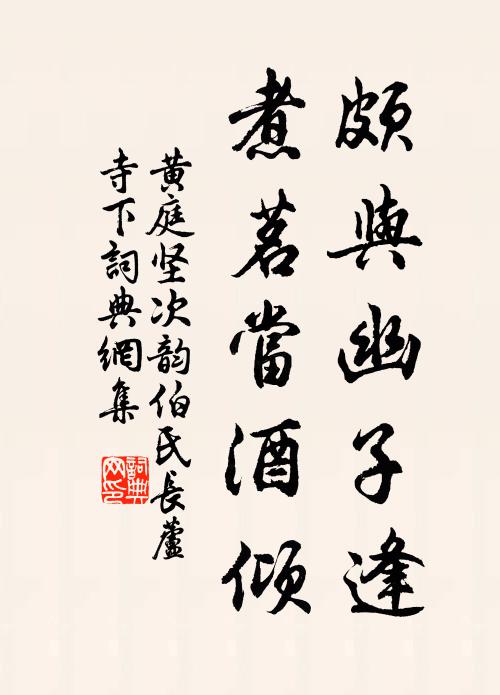 頗與幽子逢
煮茗當酒傾
黄庭坚次韵伯氏長蘆
寺下詞典網集
詞典
网印